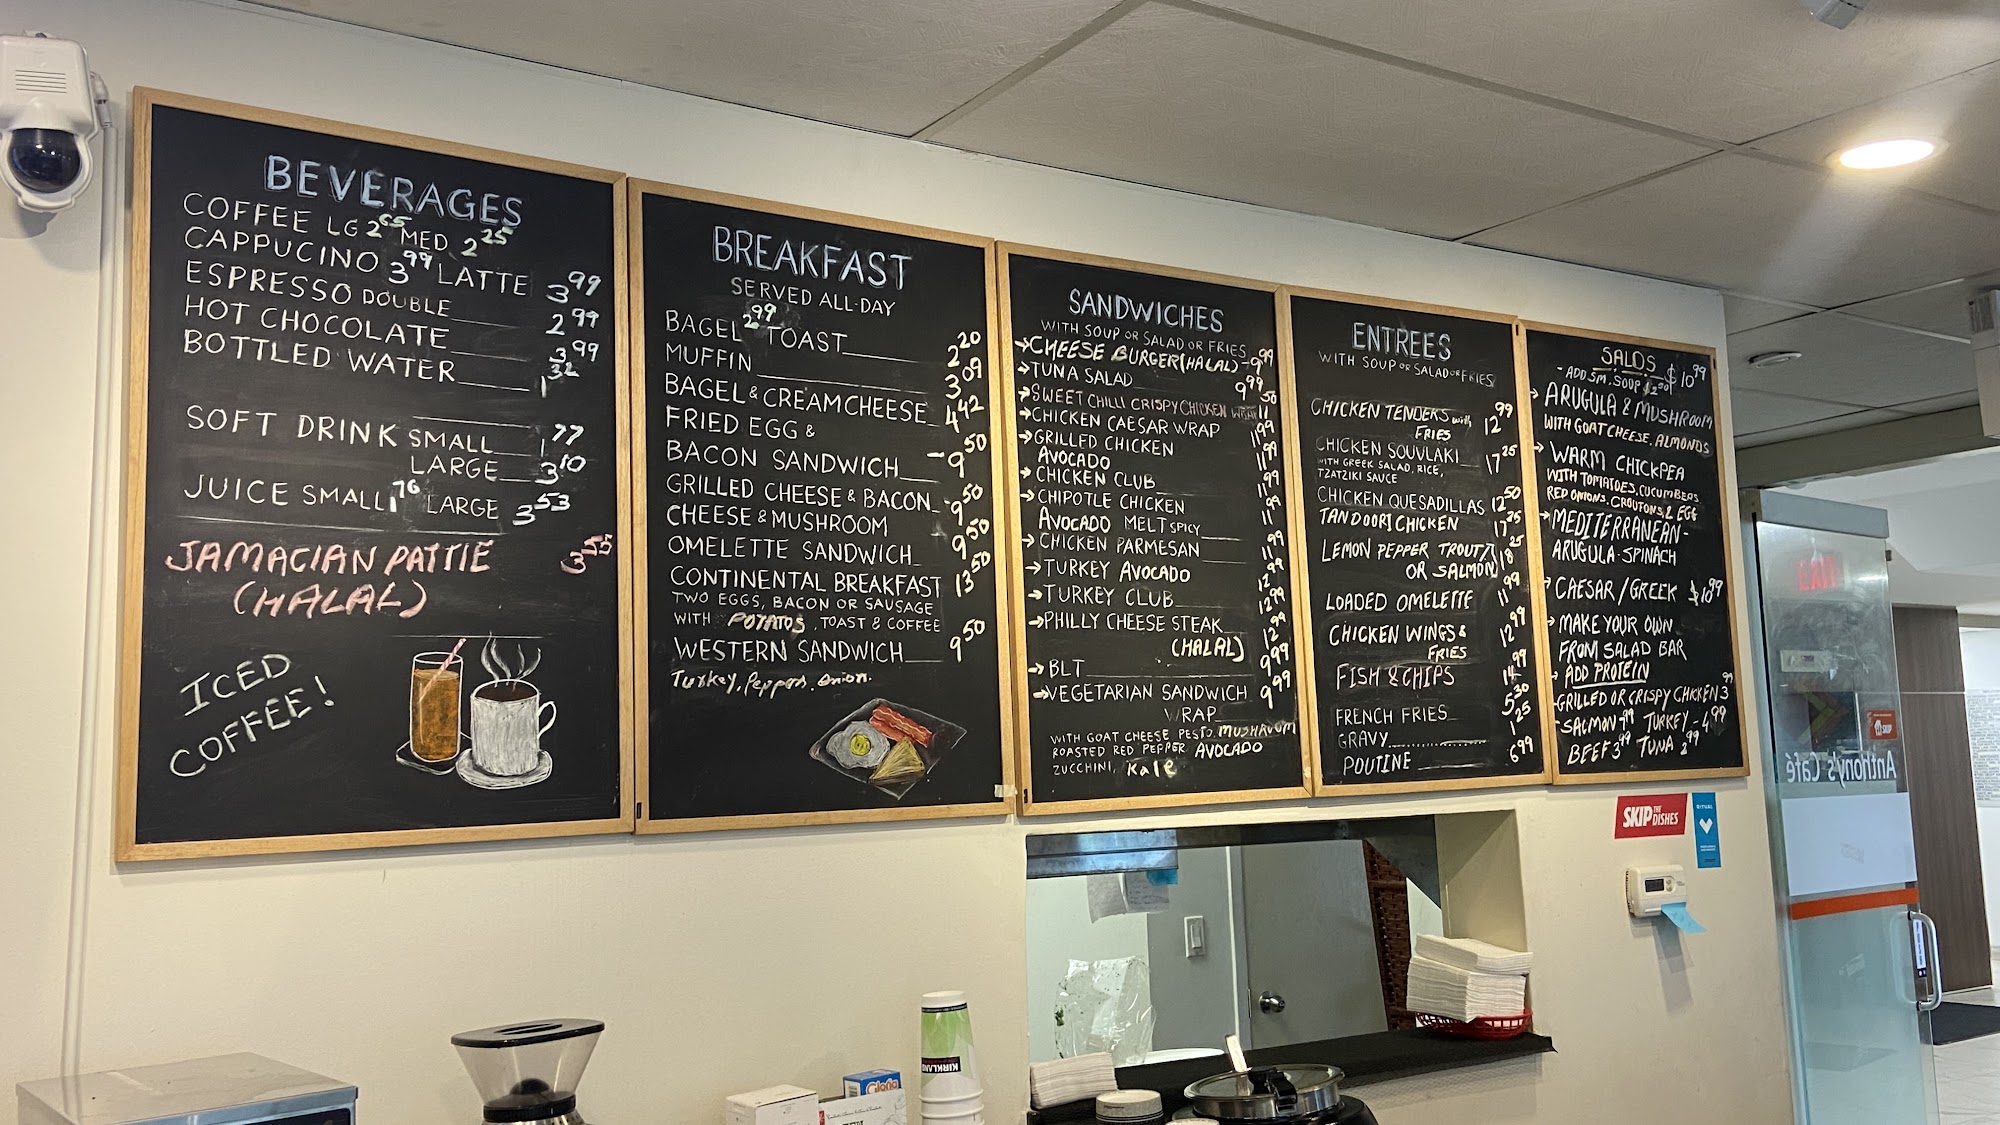 BEVERAGES
COFFEE LG 2.65 MED 2.25
CAPPUCINO 3.99 LATTE 3.99
ESPRESSO DOUBLE 2.99
HOT CHOCOLATE 3.99
BOTTLED WATER 1.32
SOFT DRINK SMALL 1.77
LARGE 3.10
JUICE SMALL 1.76 LARGE 3.53
JAMACIAN PATTIE 3.55
(HALAL)
ICED
COFFEE!
BREAKFAST
SERVED ALL-DAY
BAGEL 2.99 TOAST 2.20
MUFFIN 3.09
BAGEL & CREAM CHEESE 4.42
FRIED EGG &
BACON SANDWICH 9.50
GRILLED CHEESE & BACON 9.50
CHEESE & MUSHROOM
OMELETTE SANDWICH 9.50
CONTINENTAL BREAKFAST 13.50
TWO EGGS, BACON OR SAUSAGE
WITH POTATOS, TOAST & COFFEE
WESTERN SANDWICH 9.50
Turkey, Peppers, Onion.
SANDWICHES
WITH SOUP OR SALAD OR FRIES
→CHEESE BURGER (HALAL) - 9.99
→TUNA SALAD 9.99
→SWEET CHILLI CRISPY CHICKEN WRAP 11.50
→CHICKEN CAESAR WRAP 11.99
→GRILLED CHICKEN
AVOCADO 11.99
→CHICKEN CLUB 11.99
→CHIPOTLE CHICKEN
AVOCADO MELT SPICY 11.99
→CHICKEN PARMESAN 11.99
→TURKEY AVOCADO 12.99
→TURKEY CLUB 12.99
→PHILLY CHEESE STEAK 12.99
(HALAL)
→BLT 9.99
→VEGETARIAN SANDWICH 9.99
WRAP
WITH GOAT CHEESE PESTO, MUSHROOM
ROASTED RED PEPPER AVOCADO
ZUCCHINI, Kale
ENTREES
WITH SOUP OR SALAD OR FRIES
CHICKEN TENDERS with 12.99
FRIES
CHICKEN SOUVLAKI 17.25
WITH GREEK SALAD, RICE,
TZATZIKI SAUCE
CHICKEN QUESADILLAS 12.50
TANDOORI CHICKEN 17.25
LEMON PEPPER TROUT/
OR SALMON 18.25
LOADED OMELETTE 11.99
CHICKEN WINGS & 12.99
FRIES
FISH & CHIPS 14.99
FRENCH FRIES 5.30
GRAVY 1.25
POUTINE 6.99
SALDS $10.99
- ADD SM. SOUP $2.50
→ARUGULA & MUSHROOM
WITH GOAT CHEESE, ALMONDS
→WARM CHICKPEA
WITH TOMATOES, CUCUMBERS
RED ONIONS, CROUTONS, & EGG
→MEDITERRANEAN-
ARUGULA-SPINACH
→CAESAR / GREEK $10.99
→MAKE YOUR OWN
FROM SALAD BAR
→ADD PROTEIN
-GRILLED OR CRISPY CHICKEN 3.99
-SALMON 7.99 TURKEY - 4.99
BEEF 3.99 TUNA 2.99
EXIT
SKIP
Anthony's Café
SKIP THE DISHES
RITUAL
KIRKLAND